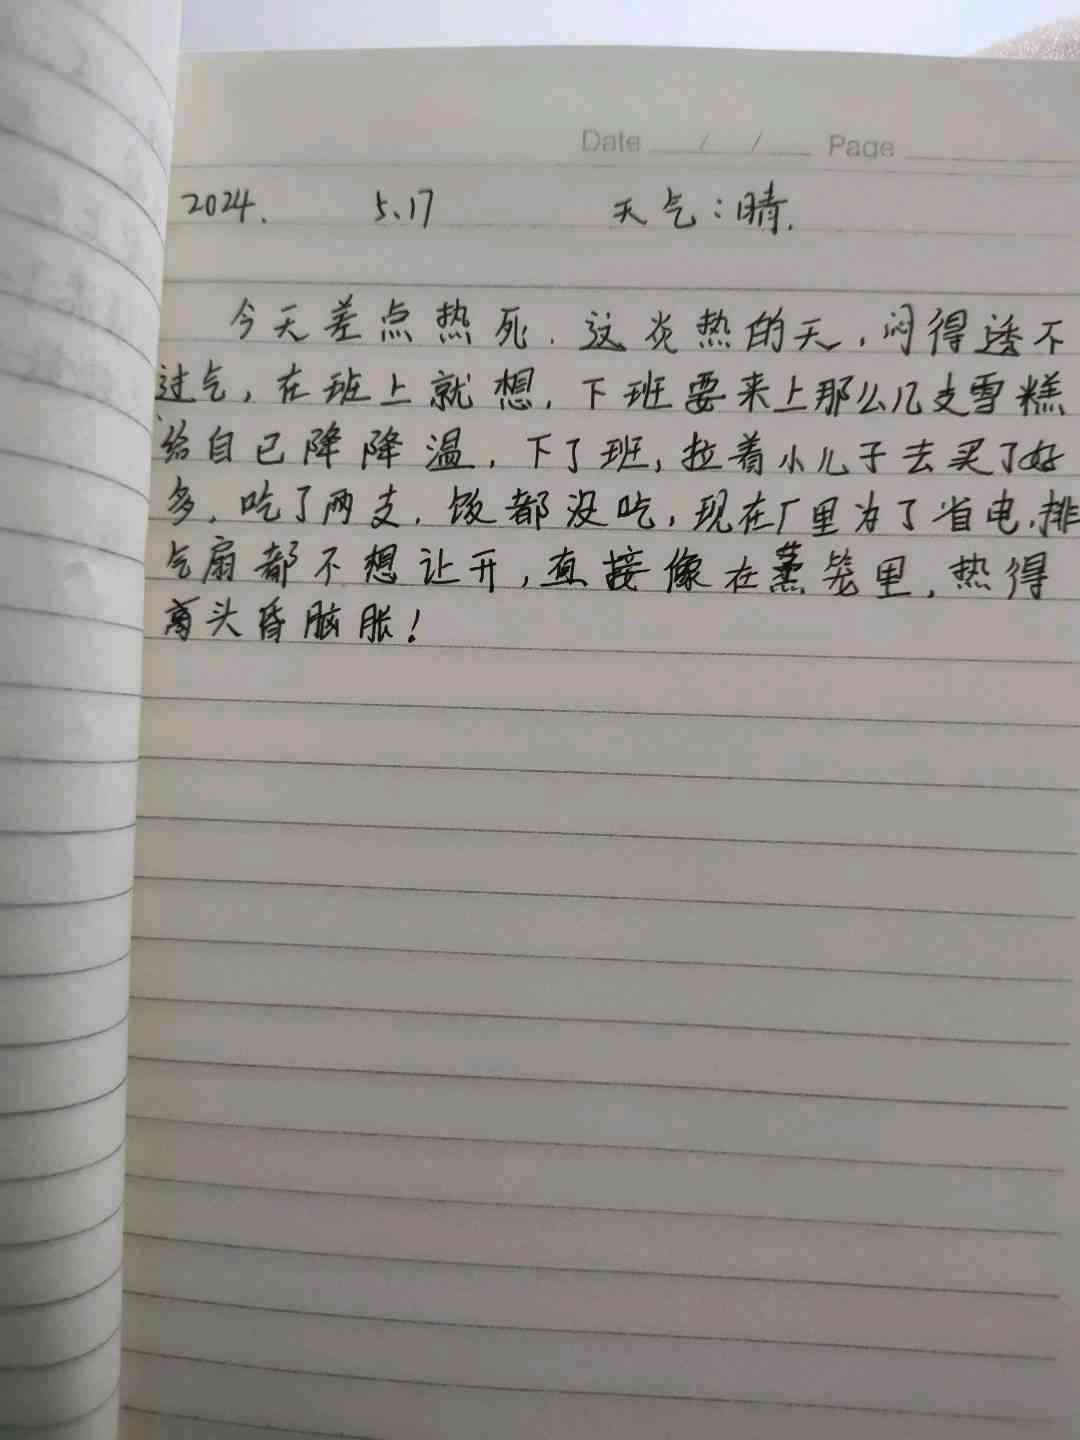 Date / / Page
2024. 5.17 天气:晴.
今天差点热死.这炎热的天,闷得透不
过气,在班上就想,下班要来上那么几支雪糕
给自已降降温,下了班,拉着小儿子去买了好
多.吃了两支.饭都没吃,现在厂里为了省电,排
气扇都不想让开,直接像在蒸笼里,热得
头昏脑胀!